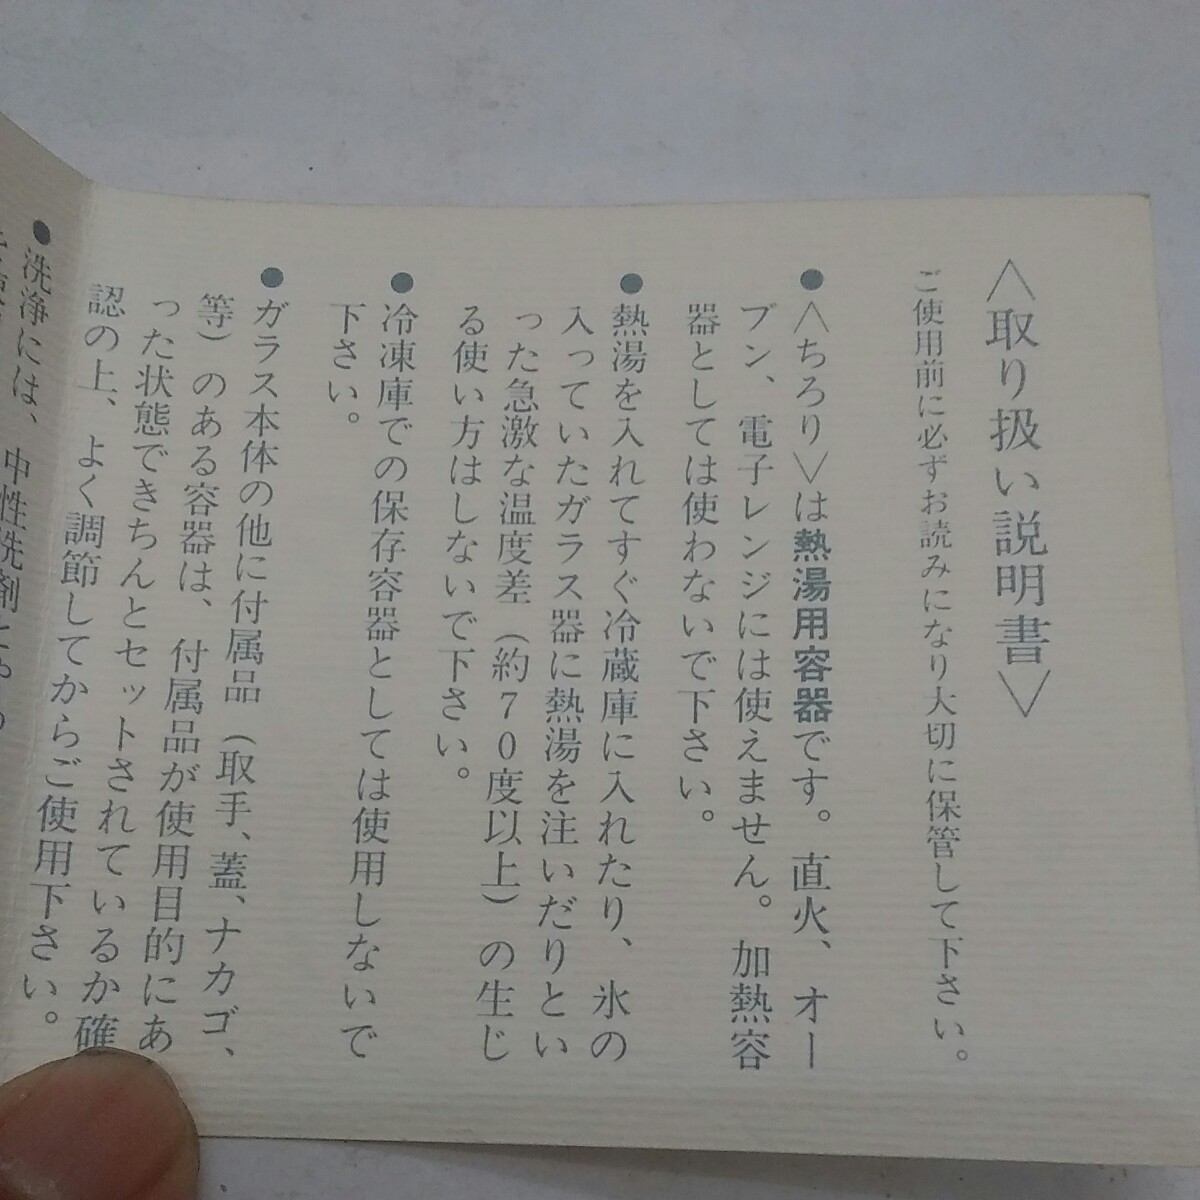 〈取り扱い説明書〉
ご使用前に必ずお読みになり大切に保管して下さい。
●〈ちろり〉は熱湯用容器です。直火、オー
ブン、電子レンジには使えません。加熱容
器としては使わないで下さい。
●熱湯を入れてすぐ冷蔵庫に入れたり、氷の
入っていたガラス器に熱湯を注いだりとい
った急激な温度差（約70度以上）の生じ
る使い方はしないで下さい。
●冷凍庫での保存容器としては使用しないで
下さい。
●ガラス本体の他に付属品（取手、蓋、ナカゴ、
等）のある容器は、付属品が使用目的にあ
った状態できちんとセットされているか確
認の上、よく調節してからご使用下さい。
●洗浄には、中性洗剤と